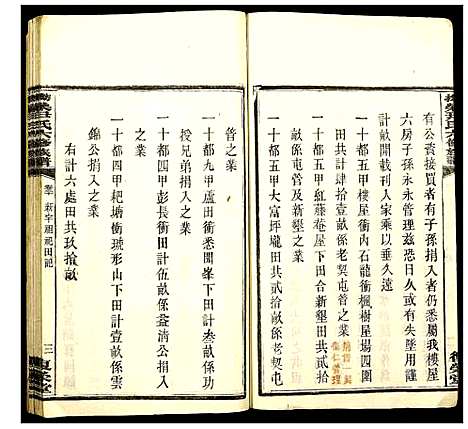 有公資接買者有子孫捐入者仍悉屬我樓房
六房子孫永永管理茲恐日久或有失墜用謹
計畝開載刊入家乘以垂久遠
一十都五甲樓屋衝內石龍衝楓樹屋場四圍
田共計肆拾壹畝係老契屯管之業
一十都五甲紅藤菴屋下田合新墾田共貳拾
畝係屯管及新墾之業
一十都五甲大富坪壠田共貳畝係老契屯
管之業
一十都九甲蘆田衝悉開峯下田計叁畝係功
授兄弟捐入之業
一十都四甲彭長衝田計伍畝係益清公捐入
之業
一十都四甲杷塘衝琥形山下田計壹畝係雲
錦公捐入之業
右計六處田共玖拾畝
氏六修族譜
卷 新字祖祀田記
三
復榮堂